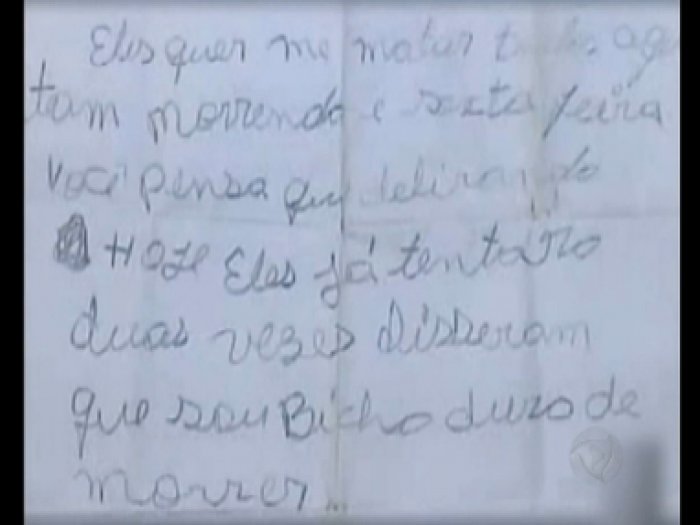 Eles quer me matar
tam morrendo e sexta feira
você pensa que delirando
Hoze Eles já tentarão
duas vezes disseram
que sou Bicho duro de
morrer